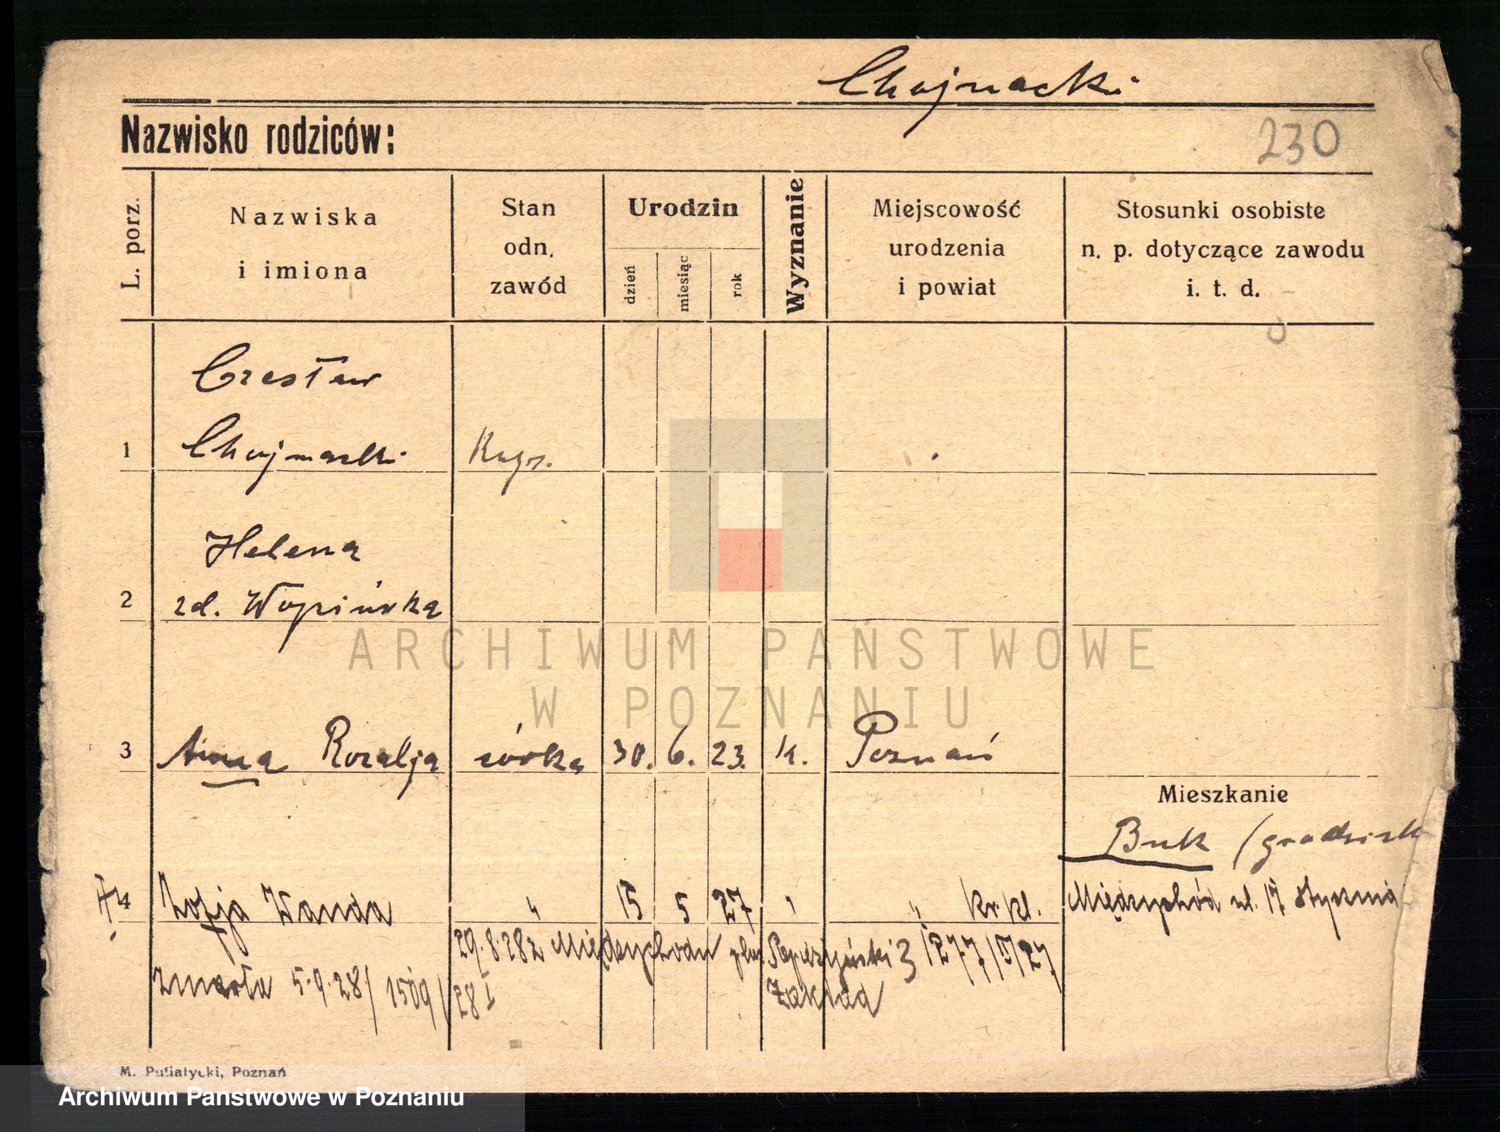 Chojnacki
Nazwisko rodziców:
230
L. porz.
Nazwiska
i imiona
Stan
odn.
zawód
Urodzin
dzień
miesiąc
rok
Wyznanie
Miejscowość
urodzenia
i powiat
Stosunki osobiste
n. p. dotyczące zawodu
i. t. d.
Czesław
1 Chojnacki
2 Helena
zd.
3 Anna Rozalja córka 30. 6. 23. k. Poznań
Mieszkanie
Buk (grodzisk
4 Zofja Wanda " 15 5 27 " " kr. kl. Międzychód ul. 17 stycznia
29.8.28 z Międzychodu 3 1277/5/27
zmarła 5.9.28/ 1509/28 I Zakład
M. Putiatycki, Poznań
ARCHIWUM PAŃSTWOWE
W POZNANIU
Archiwum Państwowe w Poznaniu